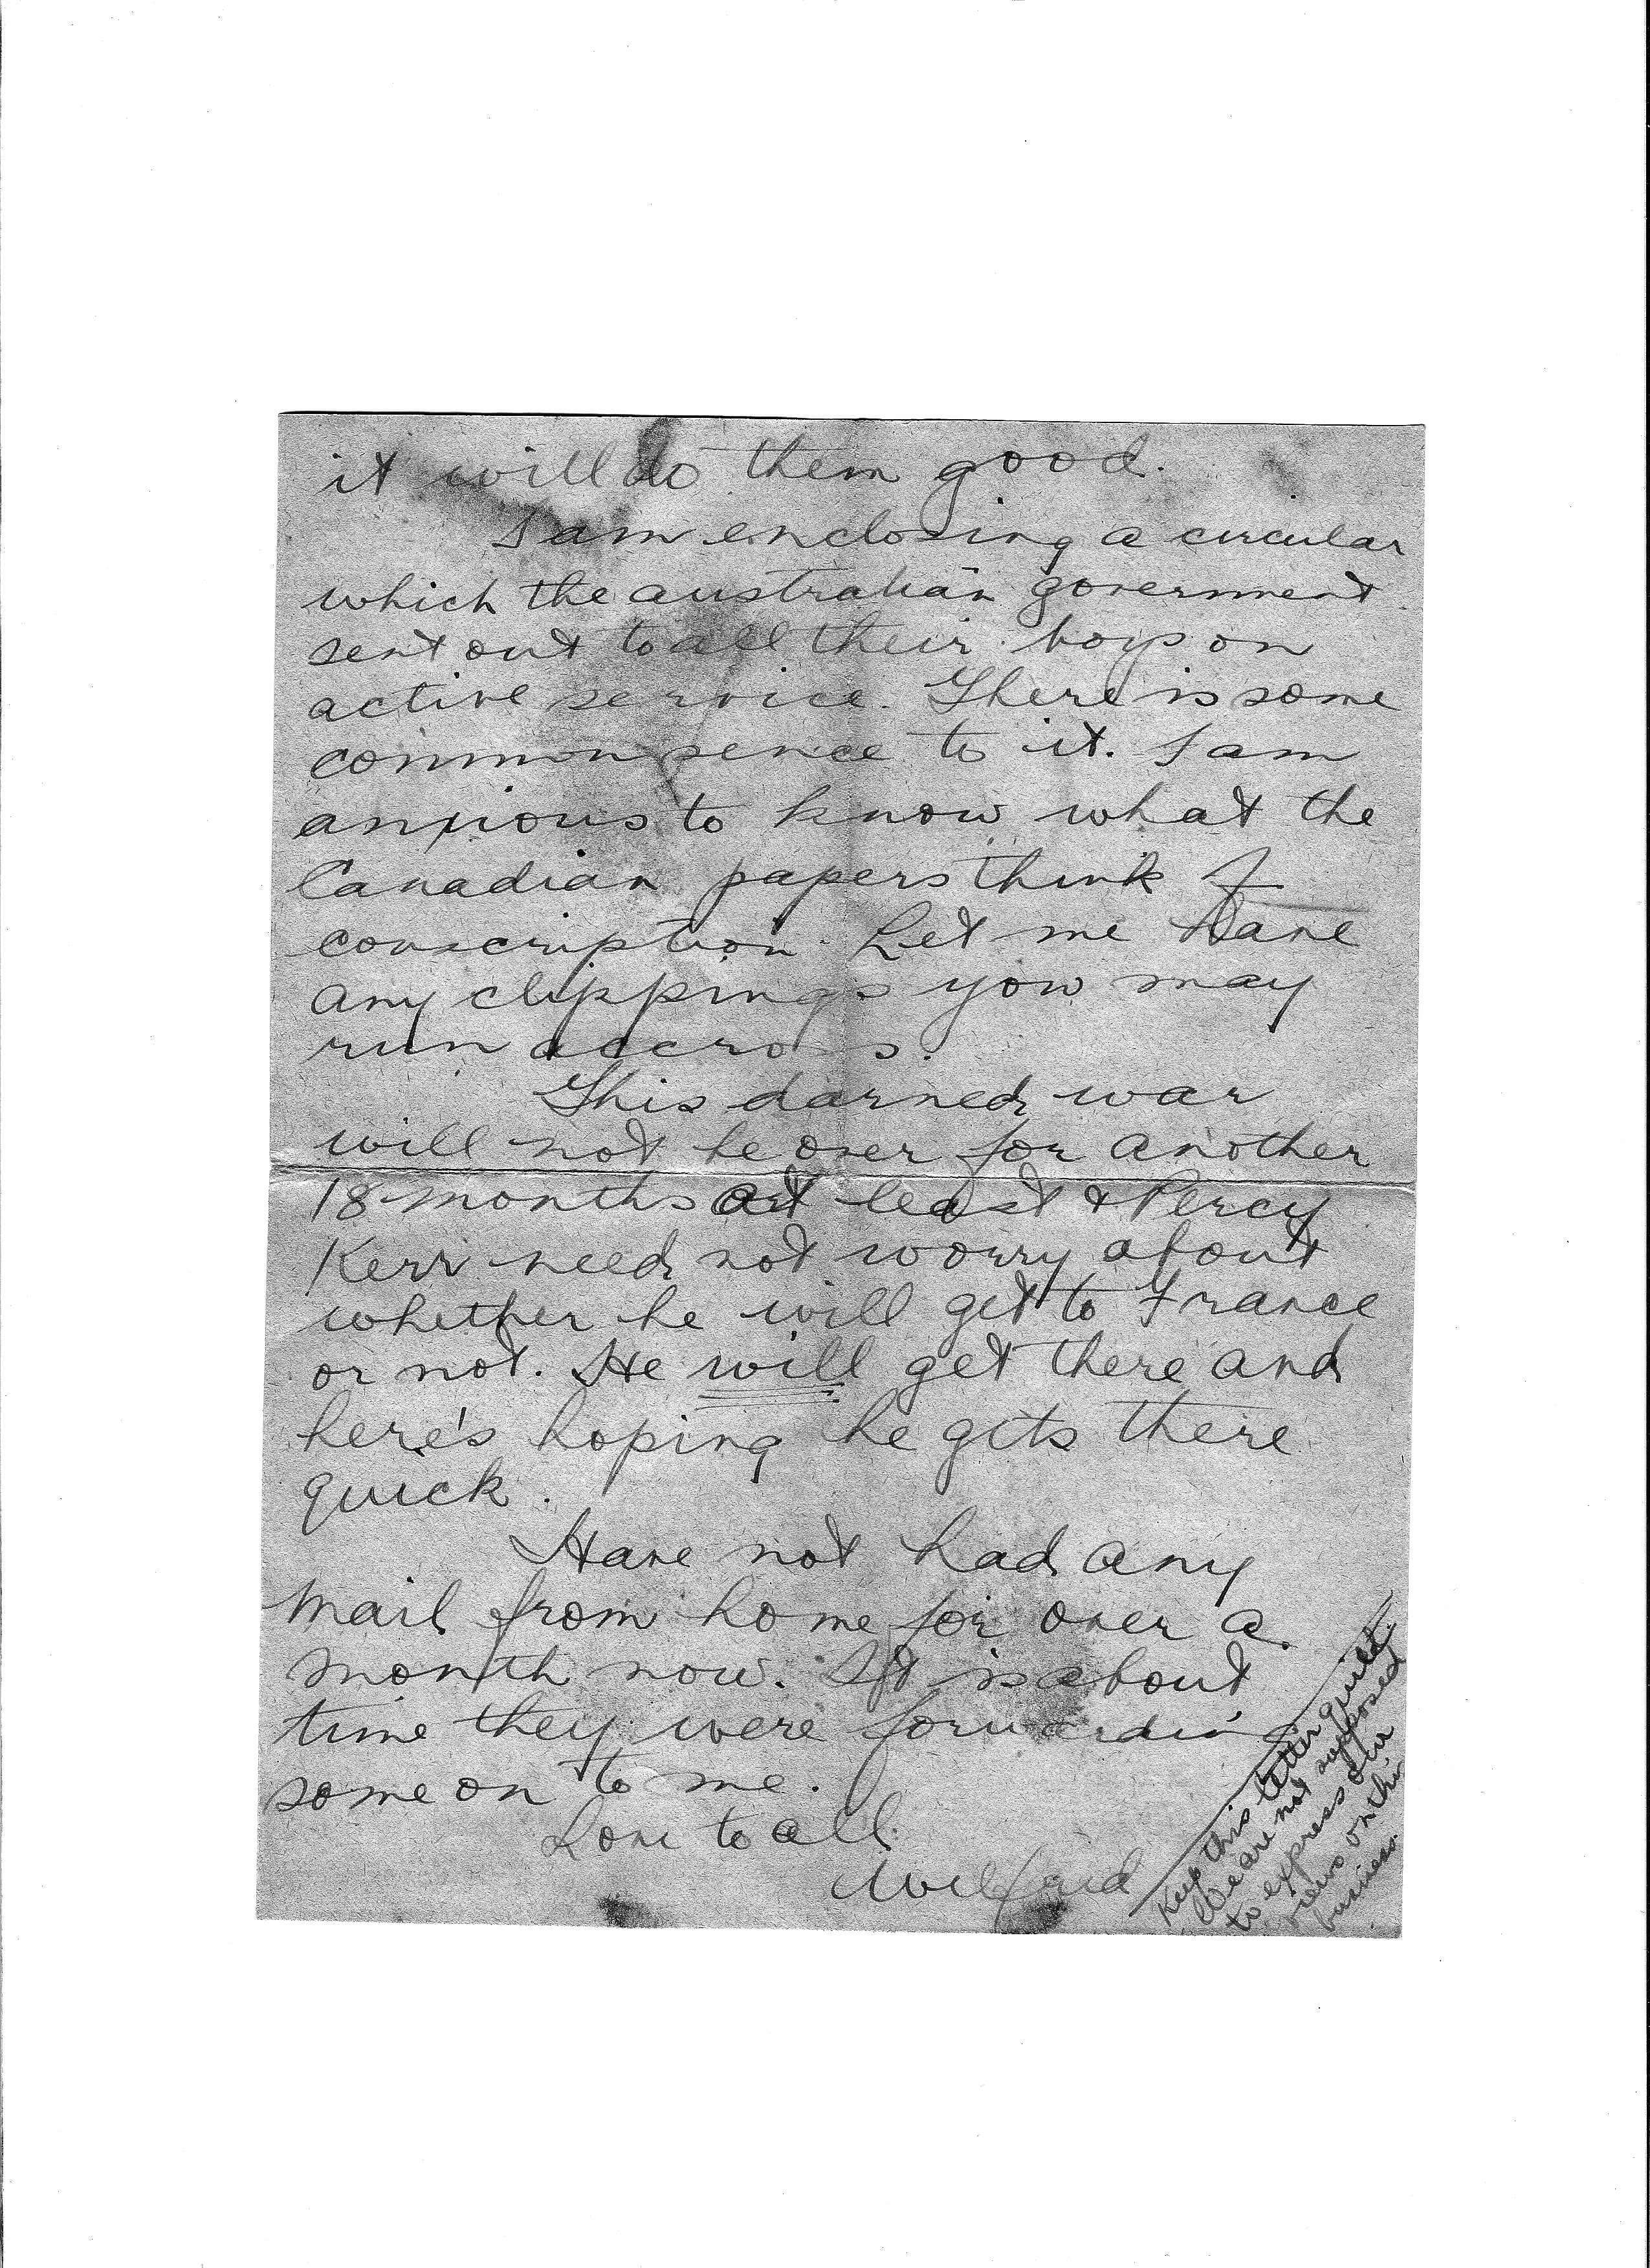 it will do them good.
I am enclosing a circular
which the australian government
sent out to all their boys on
active service. There is some
common sence to it. I am
anxious to know what the
Canadian papers think of
conscription. Let me have
any clippings you may
run accross.
This darned war
will not be over for another
18 months at least & Percy
Kerr need not worry about
whether he will get to France
or not. He will get there and
here's hoping he gets there
quick.
Have not had any
mail from home for over a
month now. It is about
time they were forwarding
some on to me.
Love to all.
Wilfrid
Keep this letter quiet.
We are not supposed
to express our
views on this
business.